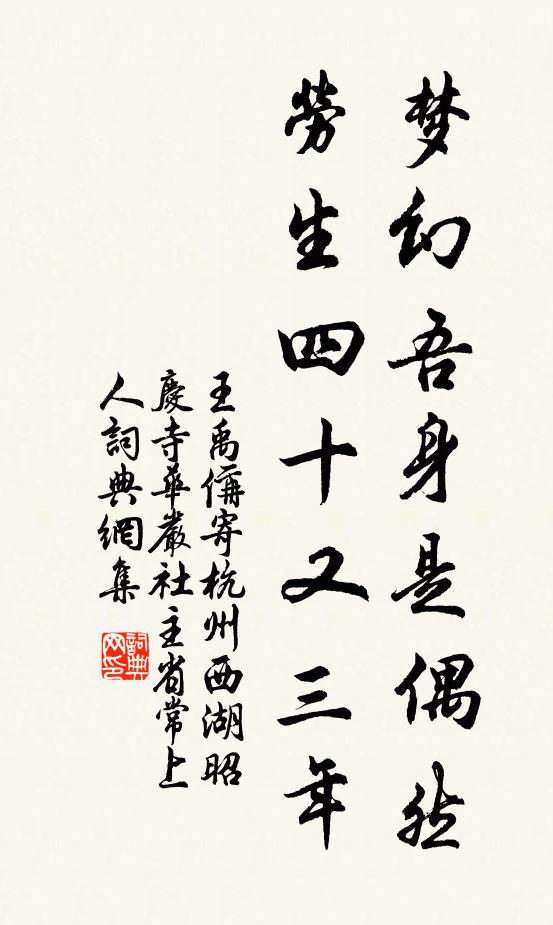 梦幻吾身是偶然
勞生四十又三年
王禹偁寄杭州西湖昭
慶寺華嚴社主省常上
人詞典網集
詞典
网印